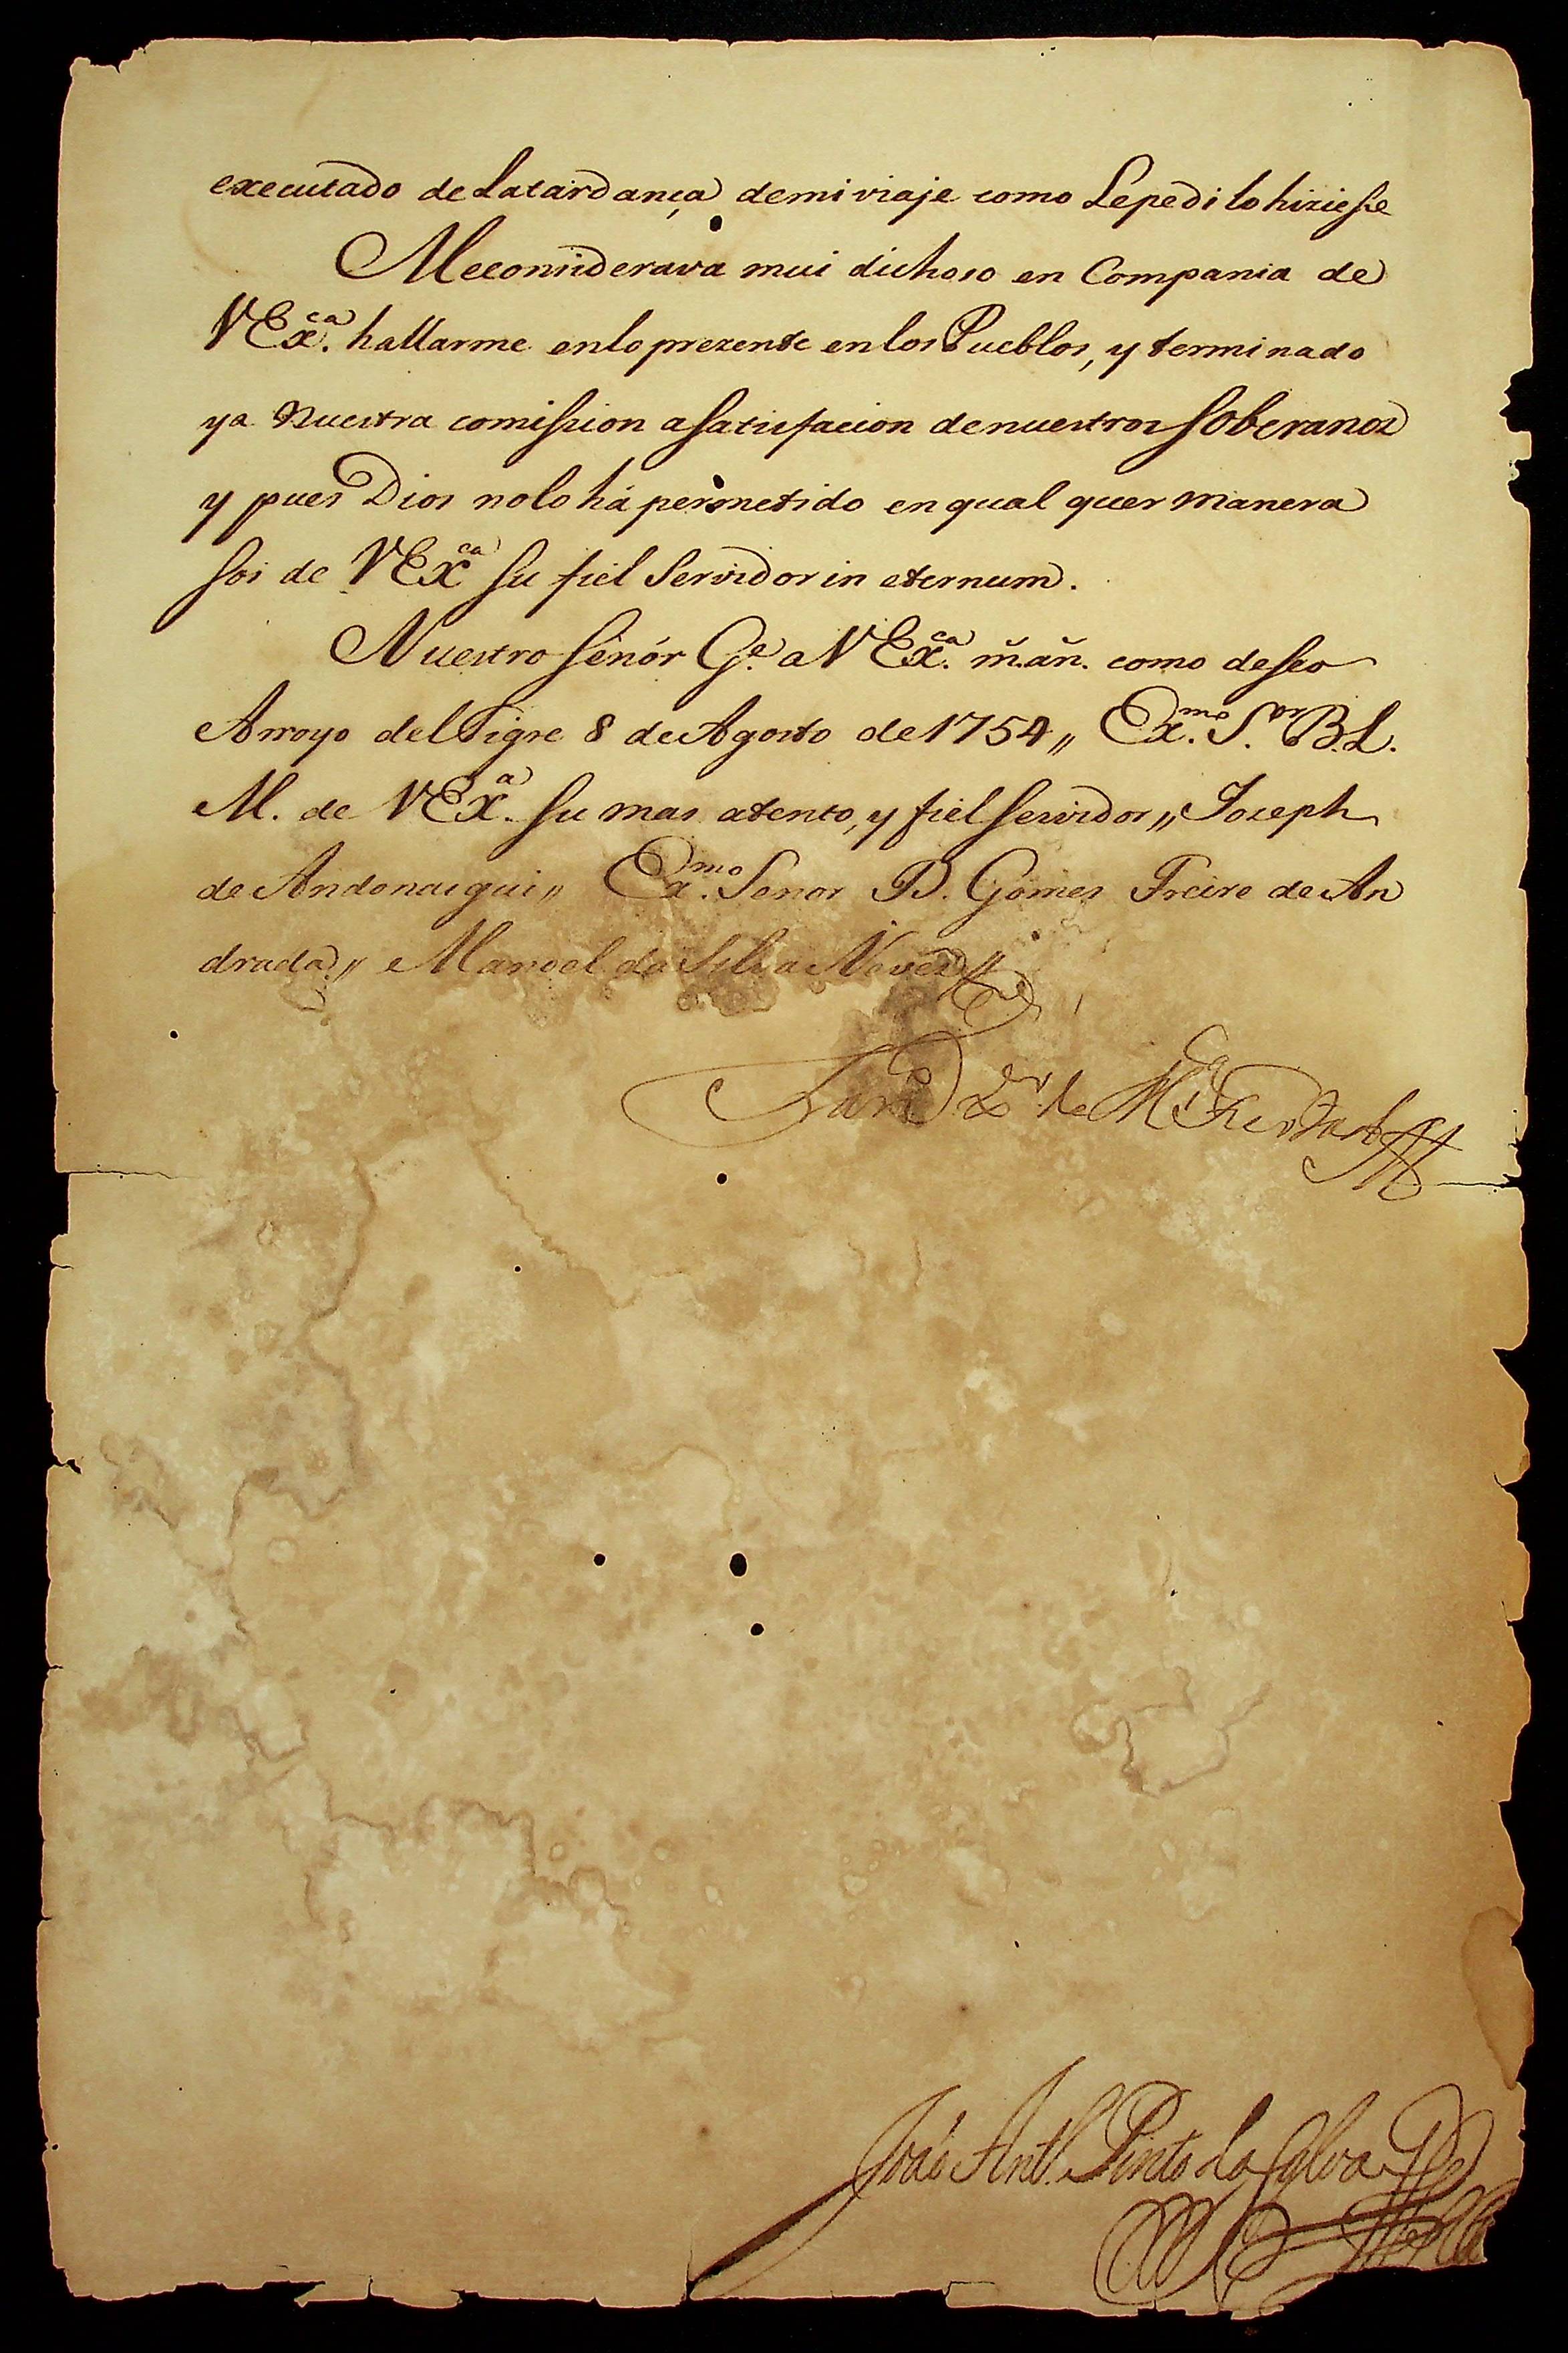 executado de Latardança demiviaje como Lepedi lo hiziesse
Meconsiderava mui dichoso en Compania de
VExᶜᵃ. hallarme enlo prezente en los Pueblos, y terminado
ya Nuestra comission asatisfacion denuestros Soberanos
y pues Dios nolo há permetido en qual quer manera
soi de VExᶜᵃ su fiel Servidor in eternum.
Nuestro Señór Gᵉ. a VExᶜᵃ. m̃. an̄. como desseo
Arroyo del Tigre 8 de Agosto de 1754,, Exᵐᵒ. Sᵒʳ. B. L.
M. de VExᵃ. su mas atento, y fiel servidor,, Joseph
de Andonaigui,, Exᵐᵒ. Senor D. Gomes Freire de An
drada,, Manoel da Silva Neves,,
João Antᵒ. Pinto da Sylvaᵃ